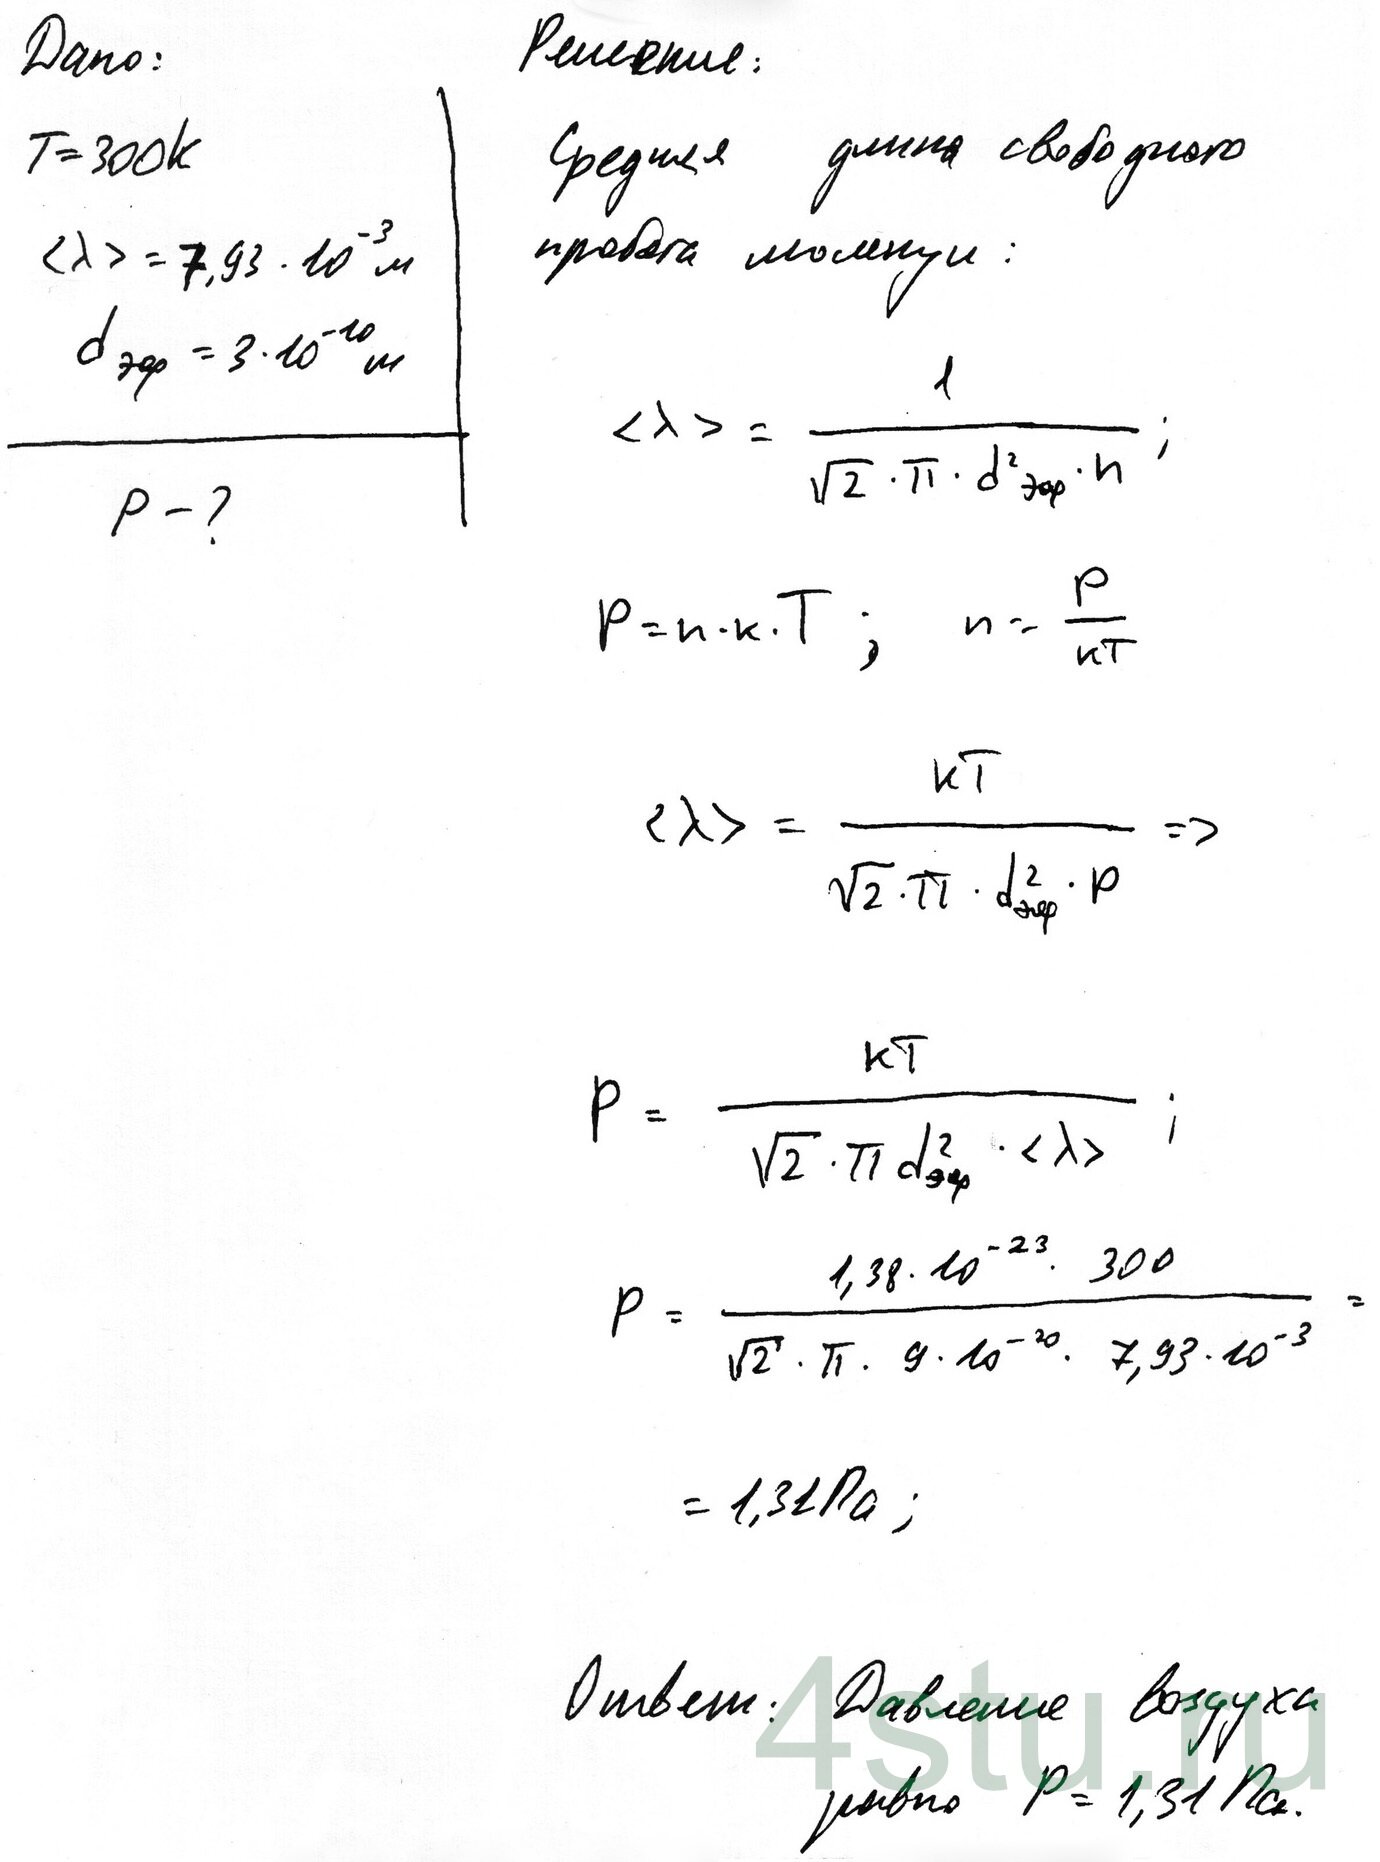 Дано:
T=300k
<λ> = 7,93 · 10⁻³ м
dэф = 3·10⁻¹⁰ м
P – ?
Решение:
Средняя длина свободного
пробега молекул:
<λ> = 1 / (√2 · π · d²эф · n) ;
P = n·к·T ; n = P / кT
<λ> = кT / (√2 · π · d²эф · P) =>
P = кT / (√2 · π d²эф · <λ>) ;
P = 1,38 · 10⁻²³ · 300 / (√2 · π · 9·10⁻²⁰ · 7,93·10⁻³) =
= 1,31 Па ;
Ответ: Давление воздуха
равно P = 1,31 Па.
4stu.ru